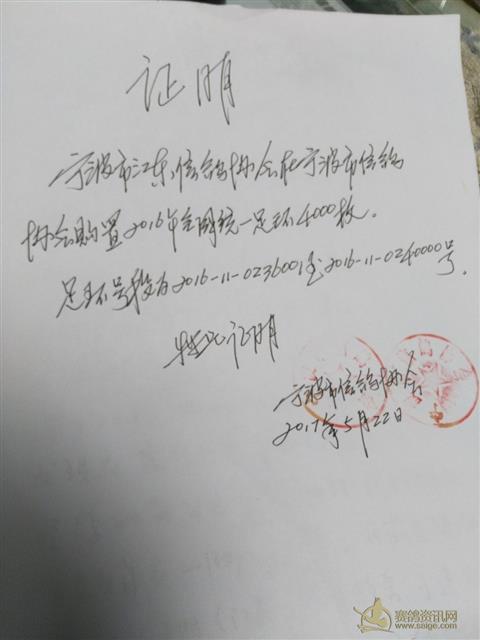 证明
宁波市江东信鸽协会在宁波市信鸽
协会购置2016年全国统一足环4000枚。
足环号码为2016-11-0236001至2016-11-0240000号。
特此证明
宁波市信鸽协会
2017年5月22日
赛鸽资讯网
www.saige.com